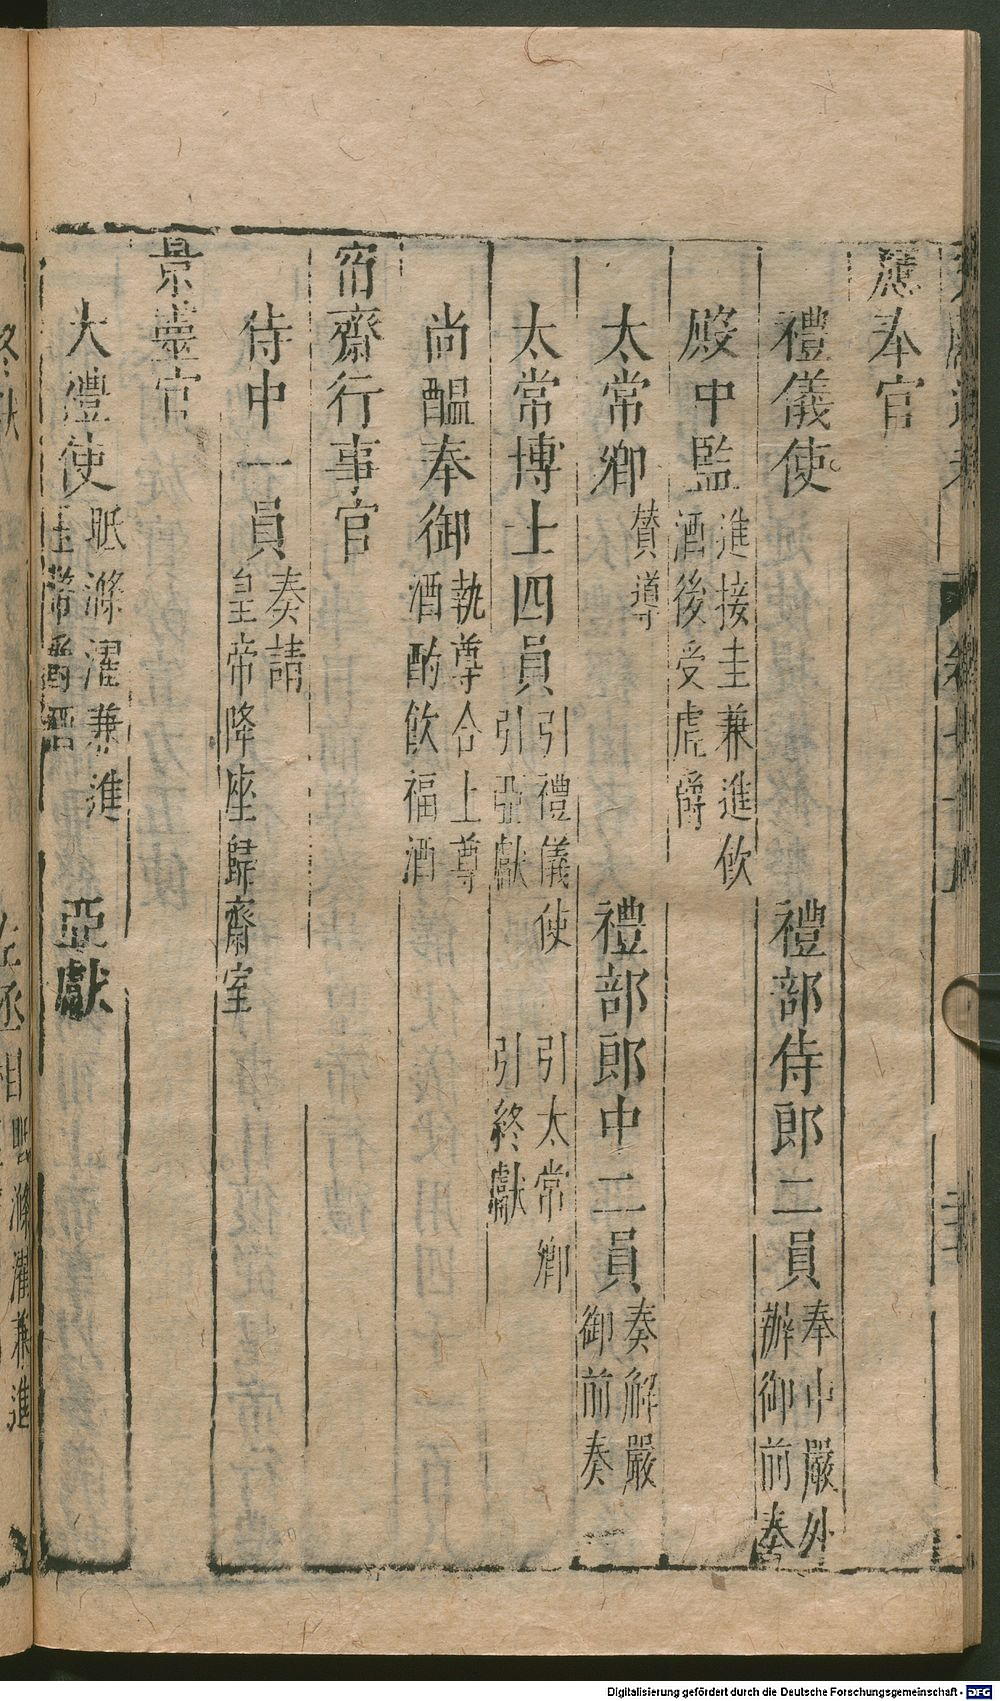 應奉官
禮儀使 禮部侍郎二員 奉中嚴外
辦御前奏
殿中監 進接圭兼進飲
酒後受虎爵
太常卿 贊導 禮部郎中二員 奏解嚴
御前奏
太常博士四員 引禮儀使 引太常卿
引亞獻 引終獻
尚醞奉御 執尊合上尊
酒酌飲福酒
宿齋行事官
侍中一員 奏請
皇帝降座歸齋室
景靈宮
大禮使 眡滌濯兼進
玉幣爵 亞獻
終獻
眡滌濯兼進
Digitalisierung gefördert durch die Deutsche Forschungsgemeinschaft - DFG